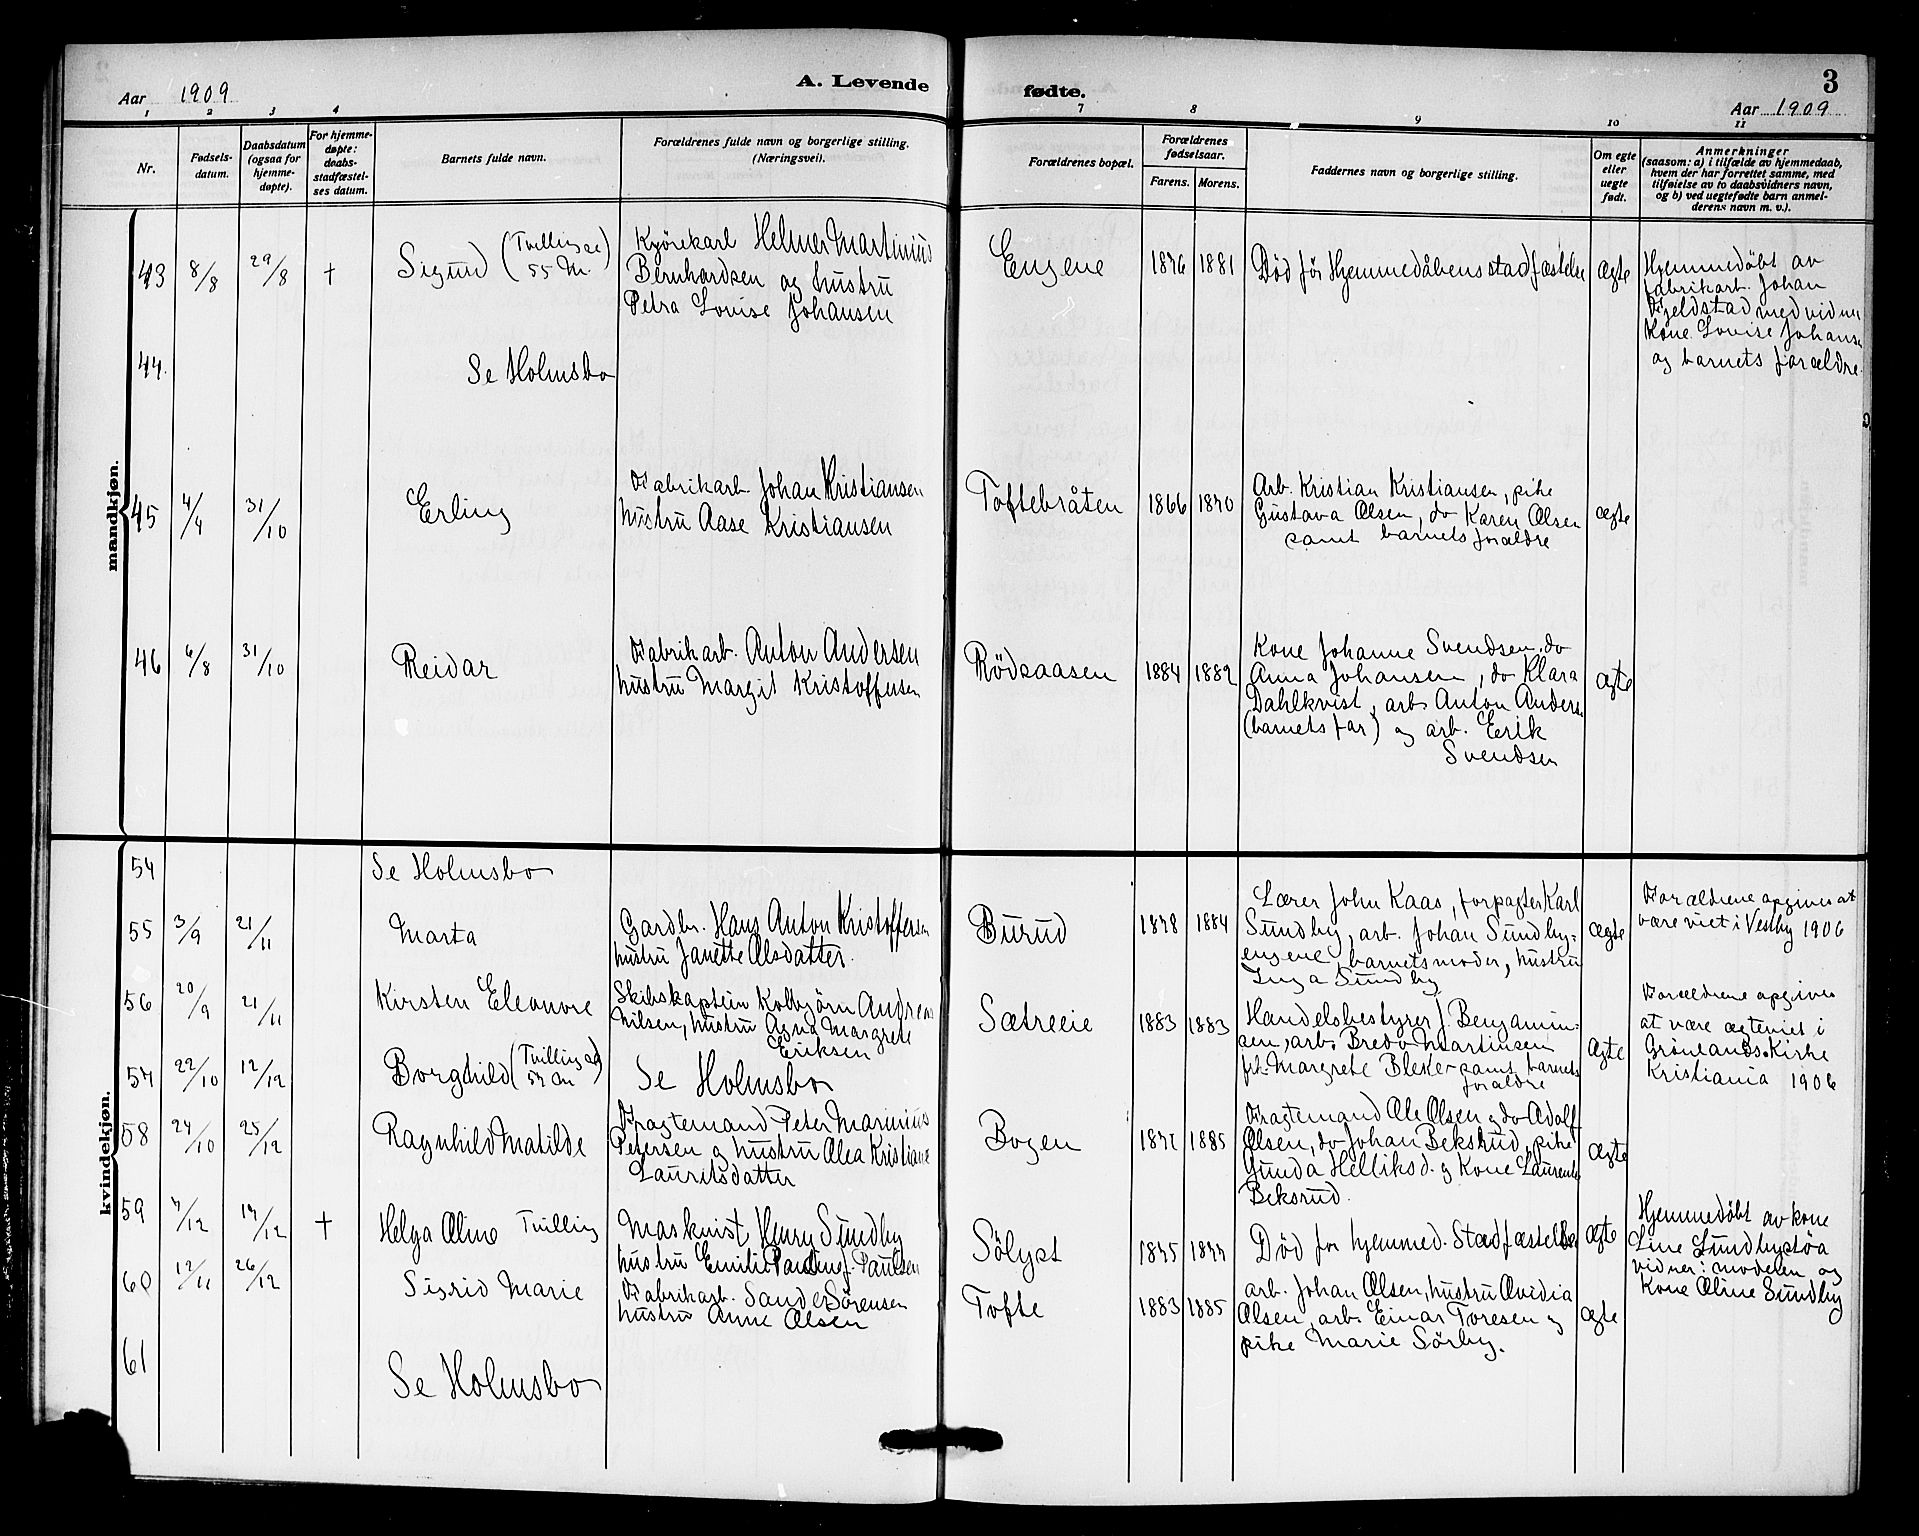 A. Levende
fødte.
3
Aar 1909
Aar 1909
1 2 3 4 7 8 9 10 11
Nr.
Fødsels-
datum.
Daabsdatum
(ogsaa for
hjemme-
døpte).
For hjemme-
døpte:
daabs-
stadfæstel-
ses datum.
Barnets fulde navn.
Forældrenes fulde navn og borgerlige stilling.
(Næringsvei).
Forældrenes bopæl.
Forældrenes
fødselsaar.
Farens. Morens.
Faddernes navn og borgerlige stilling.
Om egte
eller
uegte
født.
Anmerkninger
(saasom: a) i tilfælde av hjemmedaab,
hvem der har forrettet samme, med
tilføielse av to daabsvidners navn,
og b) ved uegtefødte barn anmel-
derens navn m. v.).
mandkjøn.
43 8/8 29/8 + Sigurd (Tvilling
55 M.
Kjørekarl Helmer Martinius
Bernhardsen og hustru
Petra Lovise Johansen
Engene 1876 1881 Død før Hjemmedåbens stadfæstelse ægte
Hjemmedøbt av
fabrikarb. Johan
Fjeldstad med vidner
Kone Lovise Johansen
og barnets forældre.
44. Se Holmsbo
45 4/4 31/10 Erling
Fabrikarb. Johan Kristiansen
hustru Aase Kristiansen
Toftebråten 1866 1870
Arb. Kristian Kristiansen, pike
Gustava Olsen, do Karen Olsen
samt barnets forældre
ægte
46 6/8 31/10 Reidar
Fabrikarb. Anton Andersen
hustru Margit Kristoffersen
Rødsaasen 1884 1882
Kone Johanne Svendsen, do
Anna Johansen, do Klara
Dahlkvist, arb. Anton Anders
(barnets far) og arb. Erik
Svendsen
ægte
kvindekjøn.
54 Se Holmsbo
55 3/9 21/11 Marta
Gardbr. Hans Anton Kristoffersen
hustru Janette Olsdatter.
Burud 1878 1884
Lærer John Kaas, forpagter Karl
Sundby, arb. Johan Sundby-
engene, barnets moder, hustru
Inga Sundby
ægte
Forældrene opgives at
være viet i Vestby 1906
56 20/9 21/11 Kirsten Eleonore
Skibskaptein Kolbjørn Andreas
Nilsen, hustru Agna Margrete
Eriksen
Sætreeie 1883 1883
Handelsbestyrer J. Benjamin-
sen, arb. Bredo Martinsen
frk. Margrete Bleker samt barnets
forældre
ægte
Forældrene opgives
at være ægteviet i
Grønlands Kirke
Kristiania 1906
57 22/10 12/12 Borghild (Tvilling
57 M Se Holmsbo
58 24/10 25/12 Ragnhild Matilde
Fragtemand Peter Marinius
Petersen og hustru Olea Kristiane
Lauritsdatter
Bogen 1871 1885
Fragtemand Ole Olsen og do Adolf
Olsen, do Johan Beksrud, pike
Gunda Helliksd. og Kone Laurentse
Beksrud.
ægte
59 7/12 17/12 + Helga Oline Tvilling
Maskinist Henry Sundby
hustru Emilie Pauline f. Paulsen
Sølyst 1875 1877 Død før hjemmed. Stadfæstelse ægte
Hjemmedøbt av kone
Line Sundbystøa
vidner: moderen og
Kone Oline Sundby
60 12/11 26/12 Sigrid Marie
Fabrikarb. Sander Sørensen
hustru Anne Olsen
Tofte 1883 1885
arb. Johan Olsen, hustru Ovidia
Olsen, arb. Einar Toresen og
pike Marie Sørby.
ægte
61
Se Holmsbo